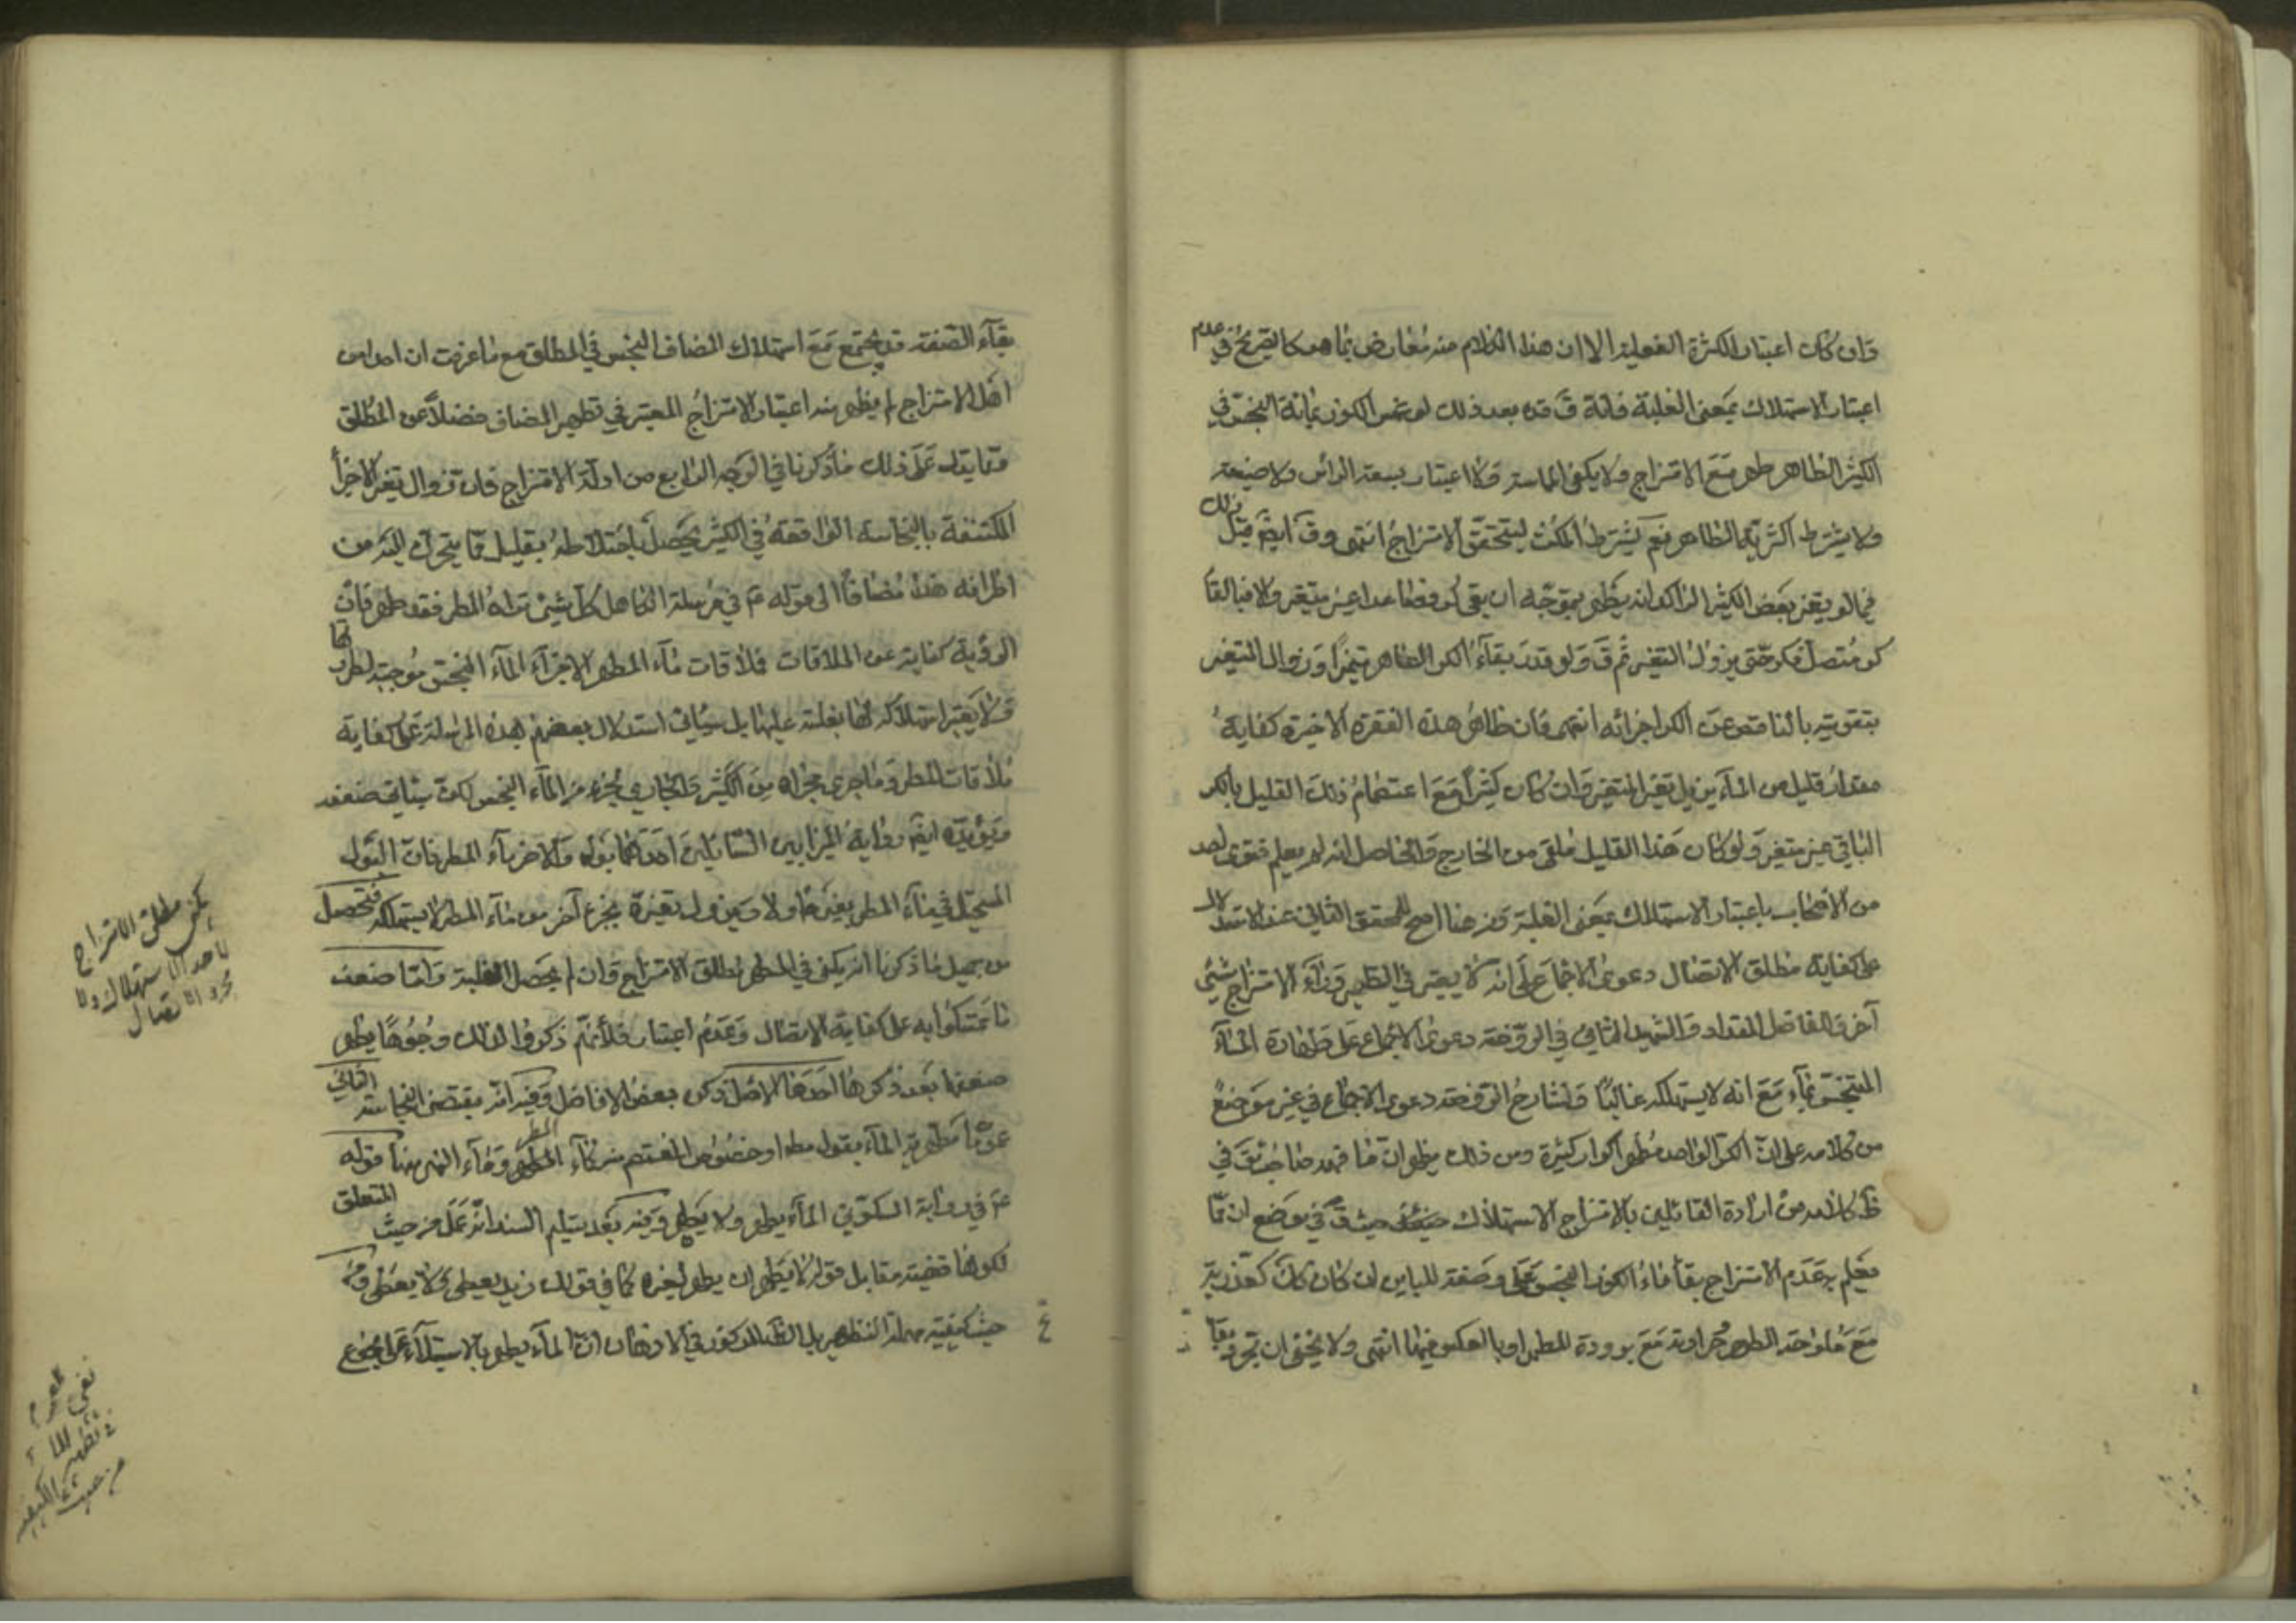 وان كان اعتبار الكثرة الفعلية الا ان هذا الكلام منه معارض بما هو كالصريح في عدم
اعتبار الاستهلاك بمعنى الغلبة فانه قَ بعد ذلك لو غمس الكوز بمائه النجس في
الكثير الطاهر طهر مع الامتزاج ولا يكفي المماسة ولا اعتبار بسعة الراس ولا ضيقه
ولا يشترط اكثرية الطاهر نعم يشترط المكث ليتحقق الامتزاج انتهى وقَ ايضَ قبل ذلك
فيما لو تغير بعض الكثير الراكد انه يطهر بتموجه ان بقي كر فصاعدا غير متغير والا فبالقاء
كر متصل فكر حتى يزول التغير ثم قَ ولو قدر بقاء الكر الطاهر متميزا وزوال التغير
بتقويته بالناقص عن الكر اجزائه انتهى فان ظاهر هذه الفقرة الاخيرة كفاية
مقدار قليل من الماء يزيل تغير المتغير وان كان كثيرا مع اعتصام ذلك القليل بالكر
الباقي غير متغير ولو كان هذا القليل ملقى من الخارج والحاصل انه لم يعلم فتوى لاحد
من الاصحاب باعتبار الاستهلاك بمعنى الغلبة ومن هنا صح للمحقق الثاني عند الاستدلال
على كفاية مطلق الاتصال دعوى الاجماع على انه لا يعتبر في التطهير وراء الامتزاج شيئ
آخر وللفاضل المقداد والشهيد الثاني في الروضة دعوى الاجماع على طهارة الماء
المتنجس بماء مع انه لا يستهلكه غالبا ولشارح الروضة دعوى الاجماع في غير موضع
من كلامه على ان الكر الواحد مطهر اكرار كثيرة ومن ذلك يظهر ان ما فهمه صاحب في
ظَ كلامه من ارادة القائلين بالامتزاج الاستهلاك ضعيف حيث قَ في موضع ان مما
يعلم به عدم الامتزاج بقاء ماء الكوز النجس على وصفه المباين ان كان كذلك كعذوبة
مع ملوحة المطهر وحرارته مع برودة المطهر او بالعكس فيهما انتهى ولا يخفى ان مجرد بقا
بقاء الصفة قد يجتمع مع استهلاك المضاف النجس في المطلق مع ما عرفت ان احدا من
اهل الامتزاج لم يظهر منه اعتبار الامتزاج المعتبر في تطهير المضاف فضلا عن المطلق
ومما يدل على ذلك ما ذكرنا في الوجه الرابع من ادلة الامتزاج فان زوال تغير الاجزأ
المكتنفة بالنجاسة الواقعة في الكثير يحصل باختلاطه بقليل مما يتحرك اليه من
اطرافه هذا مضافا الى قوله عَ في مرسلة الكاهلي كل شيئ تراه المطر فقد طهر فان
الرؤية كفاية عن الملاقات فملاقات ماء المطر لاجزاء الماء النجس موجبة لطهرها
ولا يعتبر استهلاكه لها بغلبته عليها بل سيأتي استدلال بعضهم بهذه المرسلة على كفاية
ملاقات المطر وما جرى مجراه من الكثير والجاري لجزء من الماء النجس لكن سيأتي ضعفه
ويؤيده ايضَ رواية الميزابين السائلين احدهما بول والاخر ماء المطر فان البول
المستحيل في ماء المطر يغيره اولا ويزول تغيره بجزء آخر من ماء المطر لا يستهلكه فتحصل
من جميع ما ذكرنا انه يكفي في المطهر مطلق الامتزاج وان لم يحصل الغلبة واما ضعف
ما تمسكوا به على كفاية الاتصال وعدم اعتبار فلأنهم ذكروا لذلك وجوها يظهر
ضعفها بعد ذكرها احدها الاصل ذكره بعض الافاضل وفيه انه مقتضى النجاسة الثاني
عموم مطهرية الماء بقول مطلق او خصوص المعتصم منه كماء المطر وماء النهر منها قوله
عَ في رواية السكوني الماء يطهر ولا يطهر وفيه بعد تسليم السند انه عمل من حيث المتعلق
لكونها قضية مقابل قوله لا يطهر ان يطهر غيره كما في قولك زيد يعطي ولا يعطى ومن
حيث كيفية هذا التطهير بل الظَ المركوز في الاذهان ان الماء يطهر بالاستيلاء على موضع
يكفي مطلق الامتزاج
لا حد الاستهلاك ولا
مجرد الاتصال
نفي عموم
تطهير الماء
من حيث الكيفية